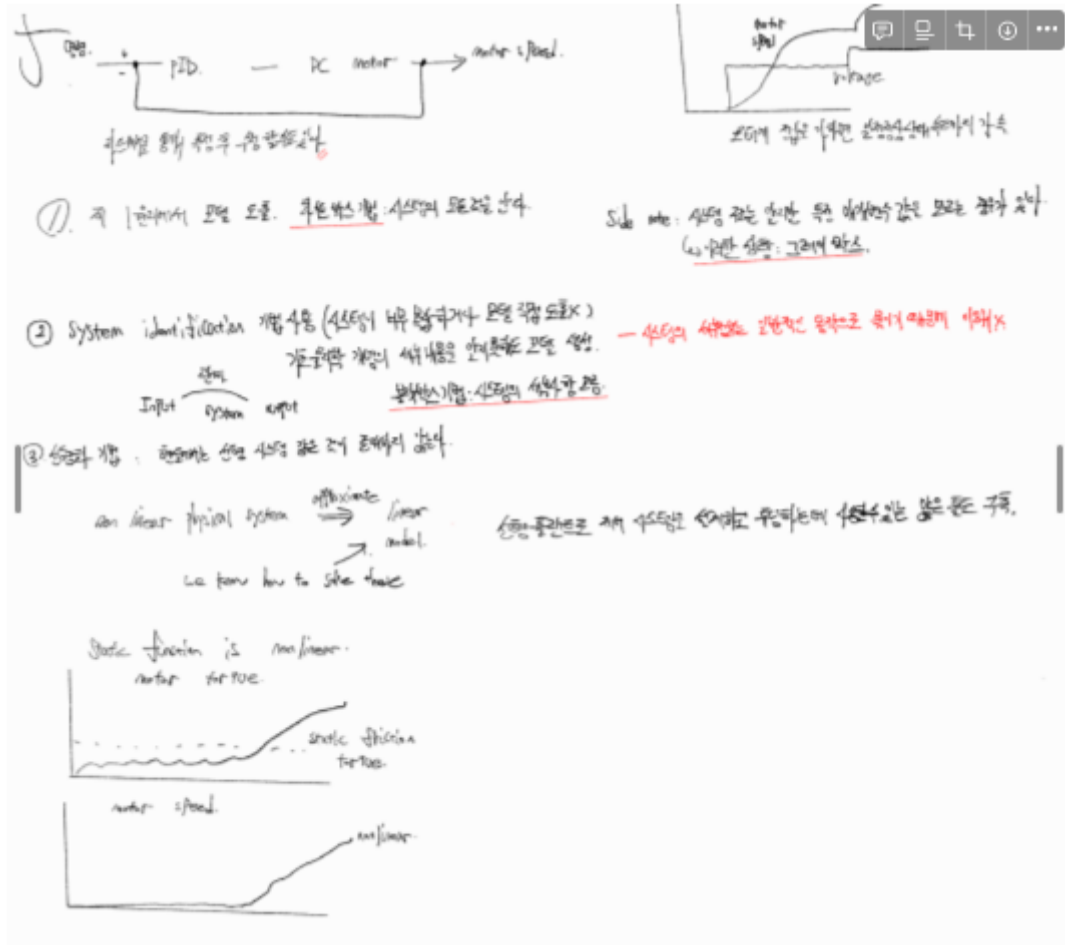 명령. + - PID. — DC motor → motor speed.
motor speed
voltage
모터에 전압을 가하면 가속
①. 제 1원리에서 모델 도출. 화이트 박스 기법 : 시스템의 모든 것을 안다.
Side note : 시스템 구조는 알지만 특정 매개변수 값은 모르는 경우가 있다.
이러한 상황 : 그레이 박스.
② System identification 기법 사용 (시스템이 너무 복잡하거나 모델 직접 도출X)
기본 물리학 개념의 세부 내용은 알지 못해도 모델 생성.
관계
Input system output
블랙박스 기법 : 시스템의
— 시스템의
③ 선형화 기법 . 현실에는 선형 시스템 같은 것이 존재하지 않는다.
non linear physical system approximate ⇒ linear model.
we know how to solve these
선형 플랜트로 제어 시스템을 설계하고 사용할 수 있는 많은 툴도 구축.
Static friction is nonlinear.
motor torque.
static friction torque.
motor speed.
nonlinear.